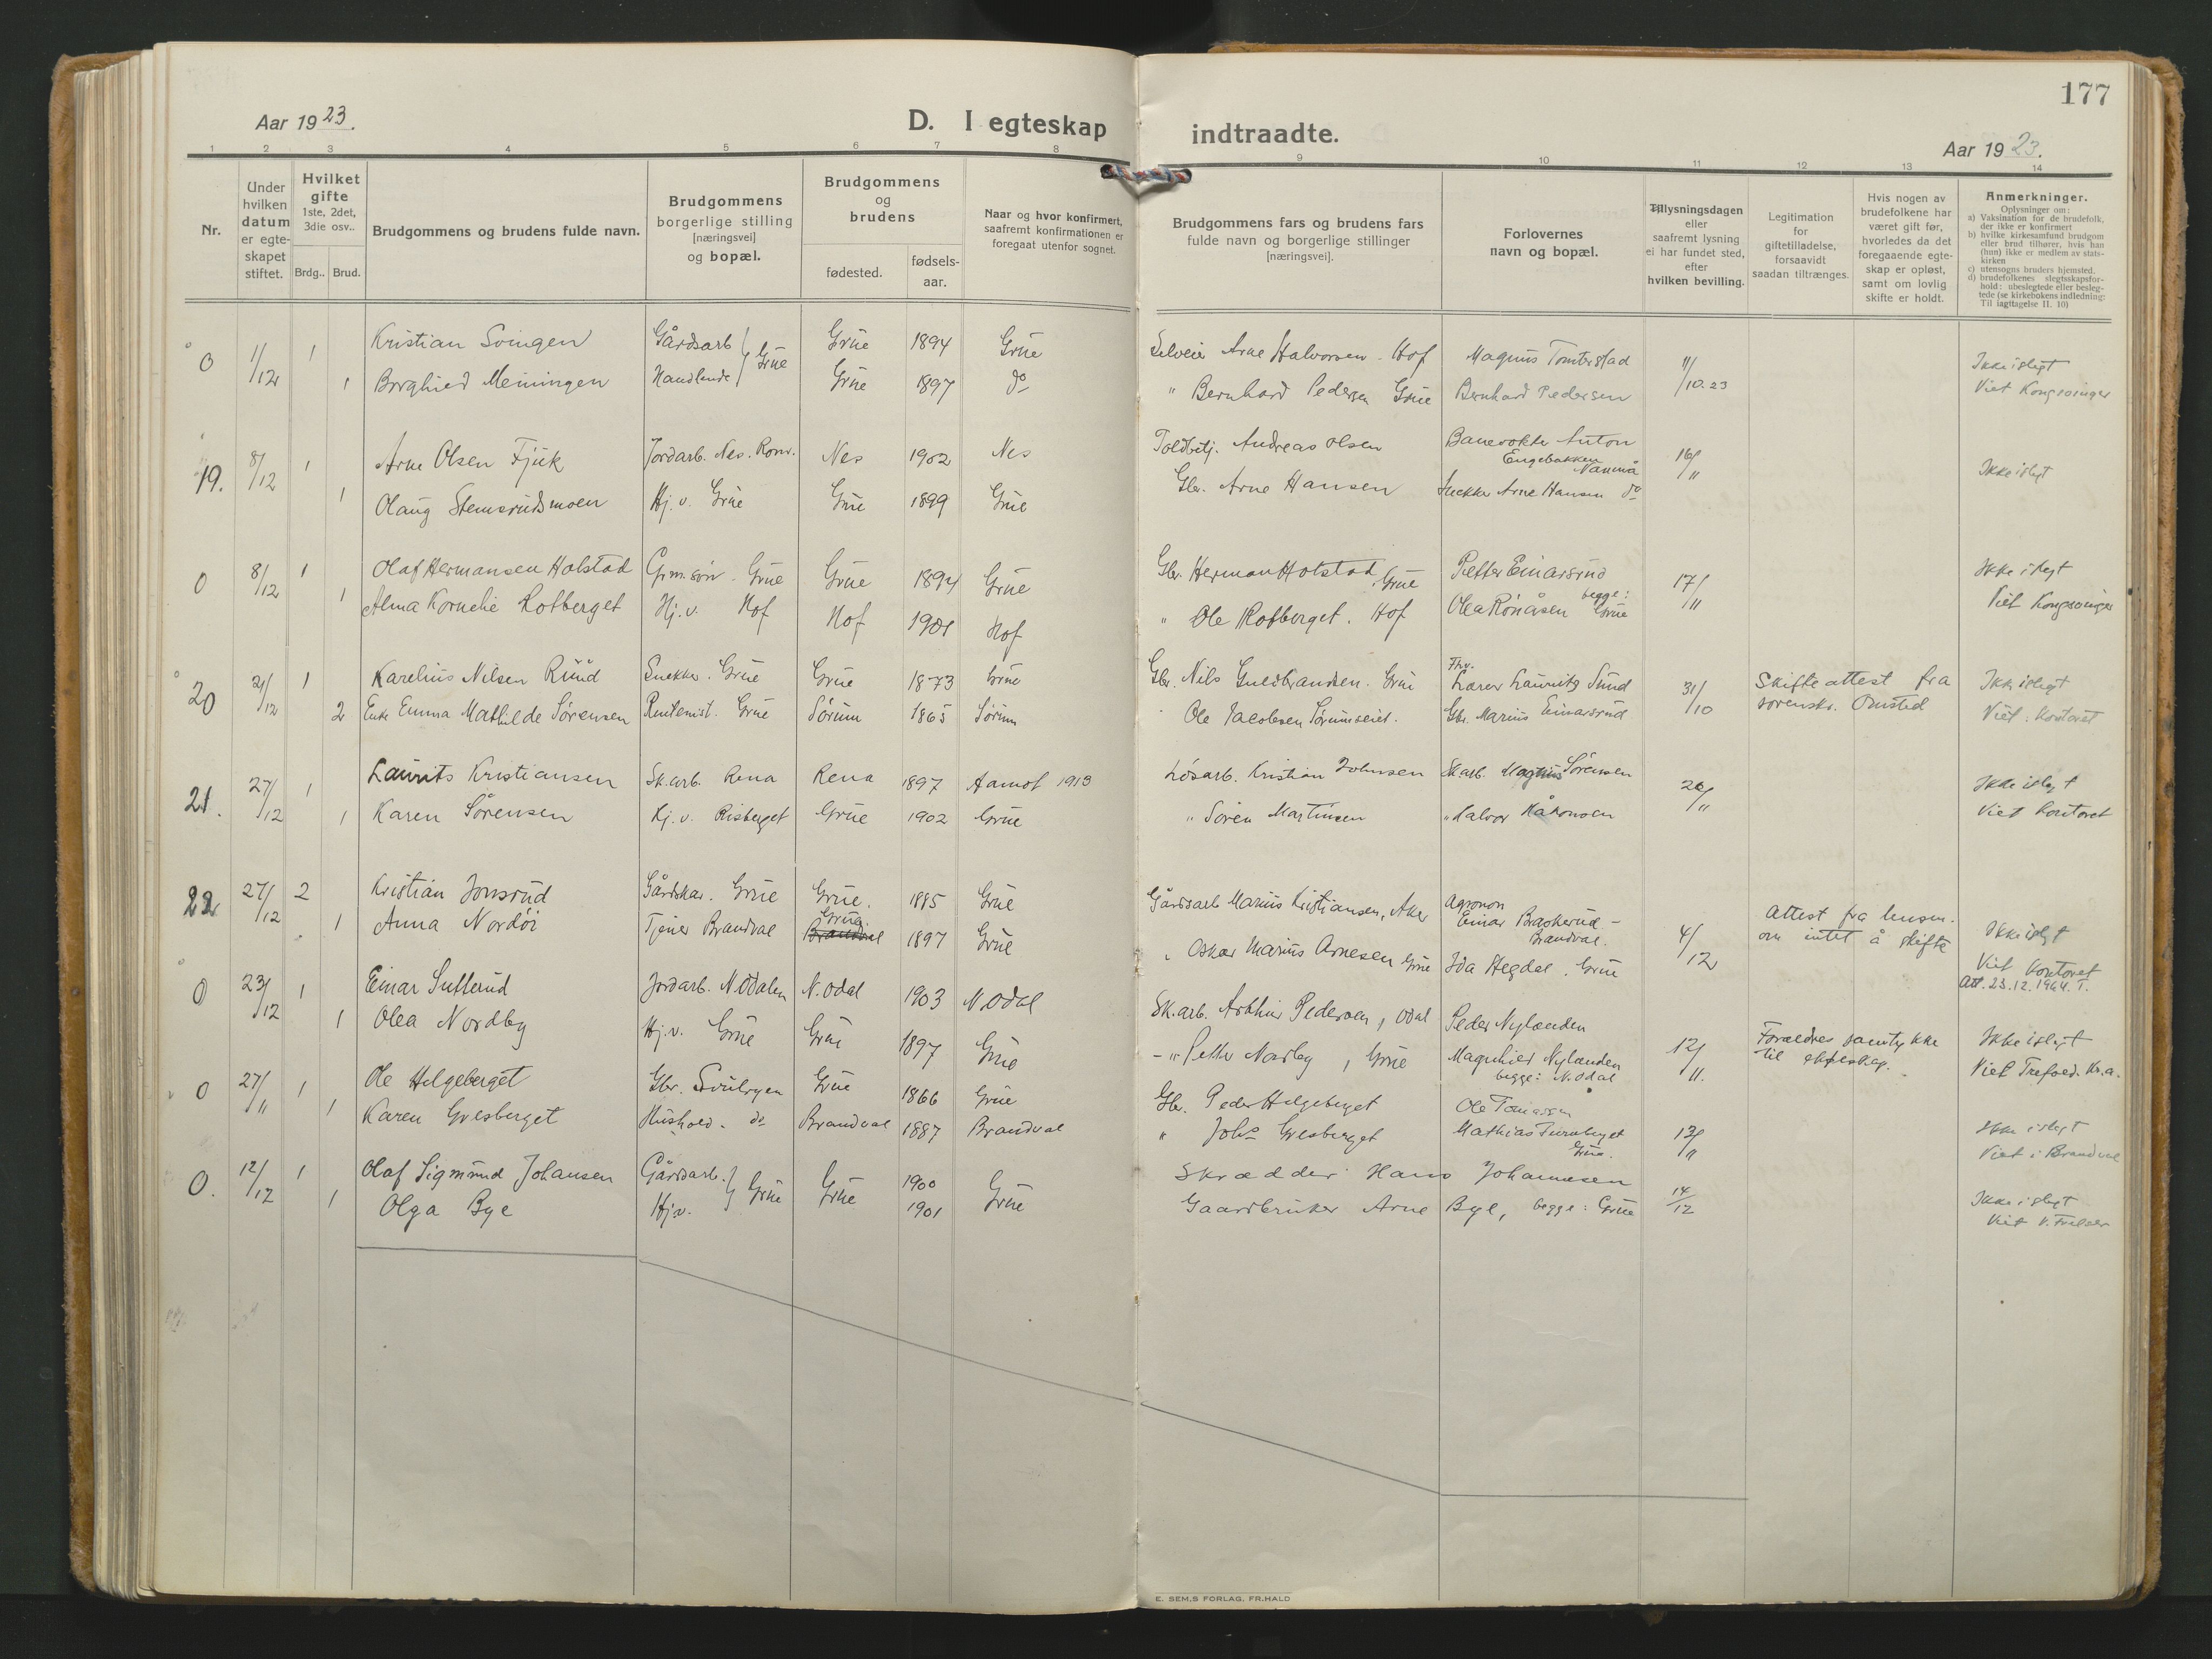 177
Aar 1923.
D. I egteskap indtraadte.
Aar 1923.
1 2 3 4 5 6 7 8 9 10 11 12 13 14
Nr.
Under hvilken datum er egteskapet stiftet.
Hvilket gifte 1ste, 2det, 3die osv..
Brdg.. Brud.
Brudgommens og brudens fulde navn.
Brudgommens borgerlige stilling [næringsvei] og bopæl.
Brudgommens og brudens
fødested.
fødsels-aar.
Naar og hvor konfirmert, saafremt konfirmationen er foregaat utenfor sognet.
Brudgommens fars og brudens fars fulde navn og borgerlige stillinger [næringsvei].
Forlovernes navn og bopæl.
Tillysningsdagen eller saafremt lysning ei har fundet sted, efter hvilken bevilling.
Legitimation for giftetilladelse, forsaavidt saadan tiltrænges.
Hvis nogen av brudefolkene har været gift før, hvorledes da det foregaaende egteskap er opløst, samt om lovlig skifte er holdt.
Anmerkninger.
Oplysninger om:
a) Vaksination for de brudefolk, der ikke er konfirmert
b) hvilke kirkesamfund brudgom eller brud tilhører, hvis han (hun) ikke er medlem av statskirken
c) utensogns bruders hjemsted.
d) brudefolkenes slegtsskapsforhold: ubeslegtede eller beslegtede (se kirkebokens indledning: Til iagttagelse II. 10)
0 1/12 1 Kristian Svingen Gårdsarb Grue Grue 1894 Grue Selveier Arne Halvorsen. Hof Magnus Tomterstad 11/10.23 Ikke i slegt
1 Borghied Meiningen Handlende Grue 1897 do " Bernhard Pedersen Grue Bernhard Pedersen Viet Kongsvinger
19. 8/12 1 Arne Olsen Fjuk Jordarb. Nes. Rom. Nes 1902 Nes Toldbetj. Andreas Olsen Banevokter Anton Engebakken Namnå 16/11 Ikke i slegt
1 Olaug Stemsrudsmoen Hj. v. Grue Grue 1899 Grue Gbr. Arne Hansen Snekker Arne Hansen do
0 8/12 1 Olaf Hermansen Holstad Grm. søn. Grue Grue 1894 Grue Gbr. Herman Holstad, Grue Petter Einarsrud 17/11 Ikke i slegt
1 Alma Kornelie Rotberget Hj. v. Hof Hof 1901 Hof " Ole Rotberget. Hof Olea Rönåsen begge: Grue Viet Kongsvinger
20 21/12 1 Karelius Nilsen Ruud Snekker. Grue Grue 1873 Grue Gbr. Nils Guldbrandsen. Grue Fhv. Lærer Lauritz Sund 31/10 Skifteattest fra Ikke i slegt
2 Enke Emma Mathilde Sørensen Rentenist. Grue Sörum 1865 Sörum Ole Jacobsen Sørumseiet. Gbr. Marius Einarsrud sorenskr. Omsted Viet. Kontoret
21. 27/12 1 Laurits Kristiansen Sk. arb. Rena Rena 1897 Aamot 1913 Løsarb. Kristian Johnsen Sk.arb. Magnus Sörensen 26/11 Ikke i slegt
1 Karen Sörensen Hj. v. Risberget Grue 1902 Grue " Sören Martinsen " Halvor Håkonsen Viet Kontoret
22 27/12 2 Kristian Jonsrud Gårdskar. Grue Grue. 1885 Grue Gårdsarb Marius Kristiansen, Aker Agronom Einar Braskerud - Brandval. 4/12 Attest fra lensm. Ikke i slegt
1 Anna Nordöi Tjener Brandval Brandval Grue. 1897 Grue " Oskar Marius Arnesen Grue Ida Hegdal. Grue om intet å skifte Viet Kontoret
Att. 23.12.1964. T.
0 23/12 1 Einar Sutterud Jordarb. N. Odalen N. Odal 1903 N. Odal Sk. arb. Arthur Pedersen, Odal Peder Nylænden 12/11. Forældres samtykke Ikke i slegt
1 Olea Nordby Hj. v. Grue Grue 1897 Grue - " Petter Nordby, Grue Magnhild Nylænden begge: N. Odal til ekteskap. Viet Trefold. Kr.a.
0 27/11 1 Ole Helgeberget Gbr. Svullryen Grue 1866 Grue Gbr. Peder Helgeberget Ole Tomassen 13/11 Ikke i slegt
1 Karen Gresberget Hushold. do Brandval 1887 Brandval " Johs Gresberget Mathias Furuberget Grue. Viet i Brandval
0. 12/12 1 Olaf Sigmund Johansen Gårdsarb. Grue Grue 1900 Grue Skrædder Hans Johannesen 14/12 Ikke i slegt
1 Olga Bye Hj.v. 1901 Gaardbruker Arne Bye, begge: Grue
E. SEM,S FORLAG. FR.HALD